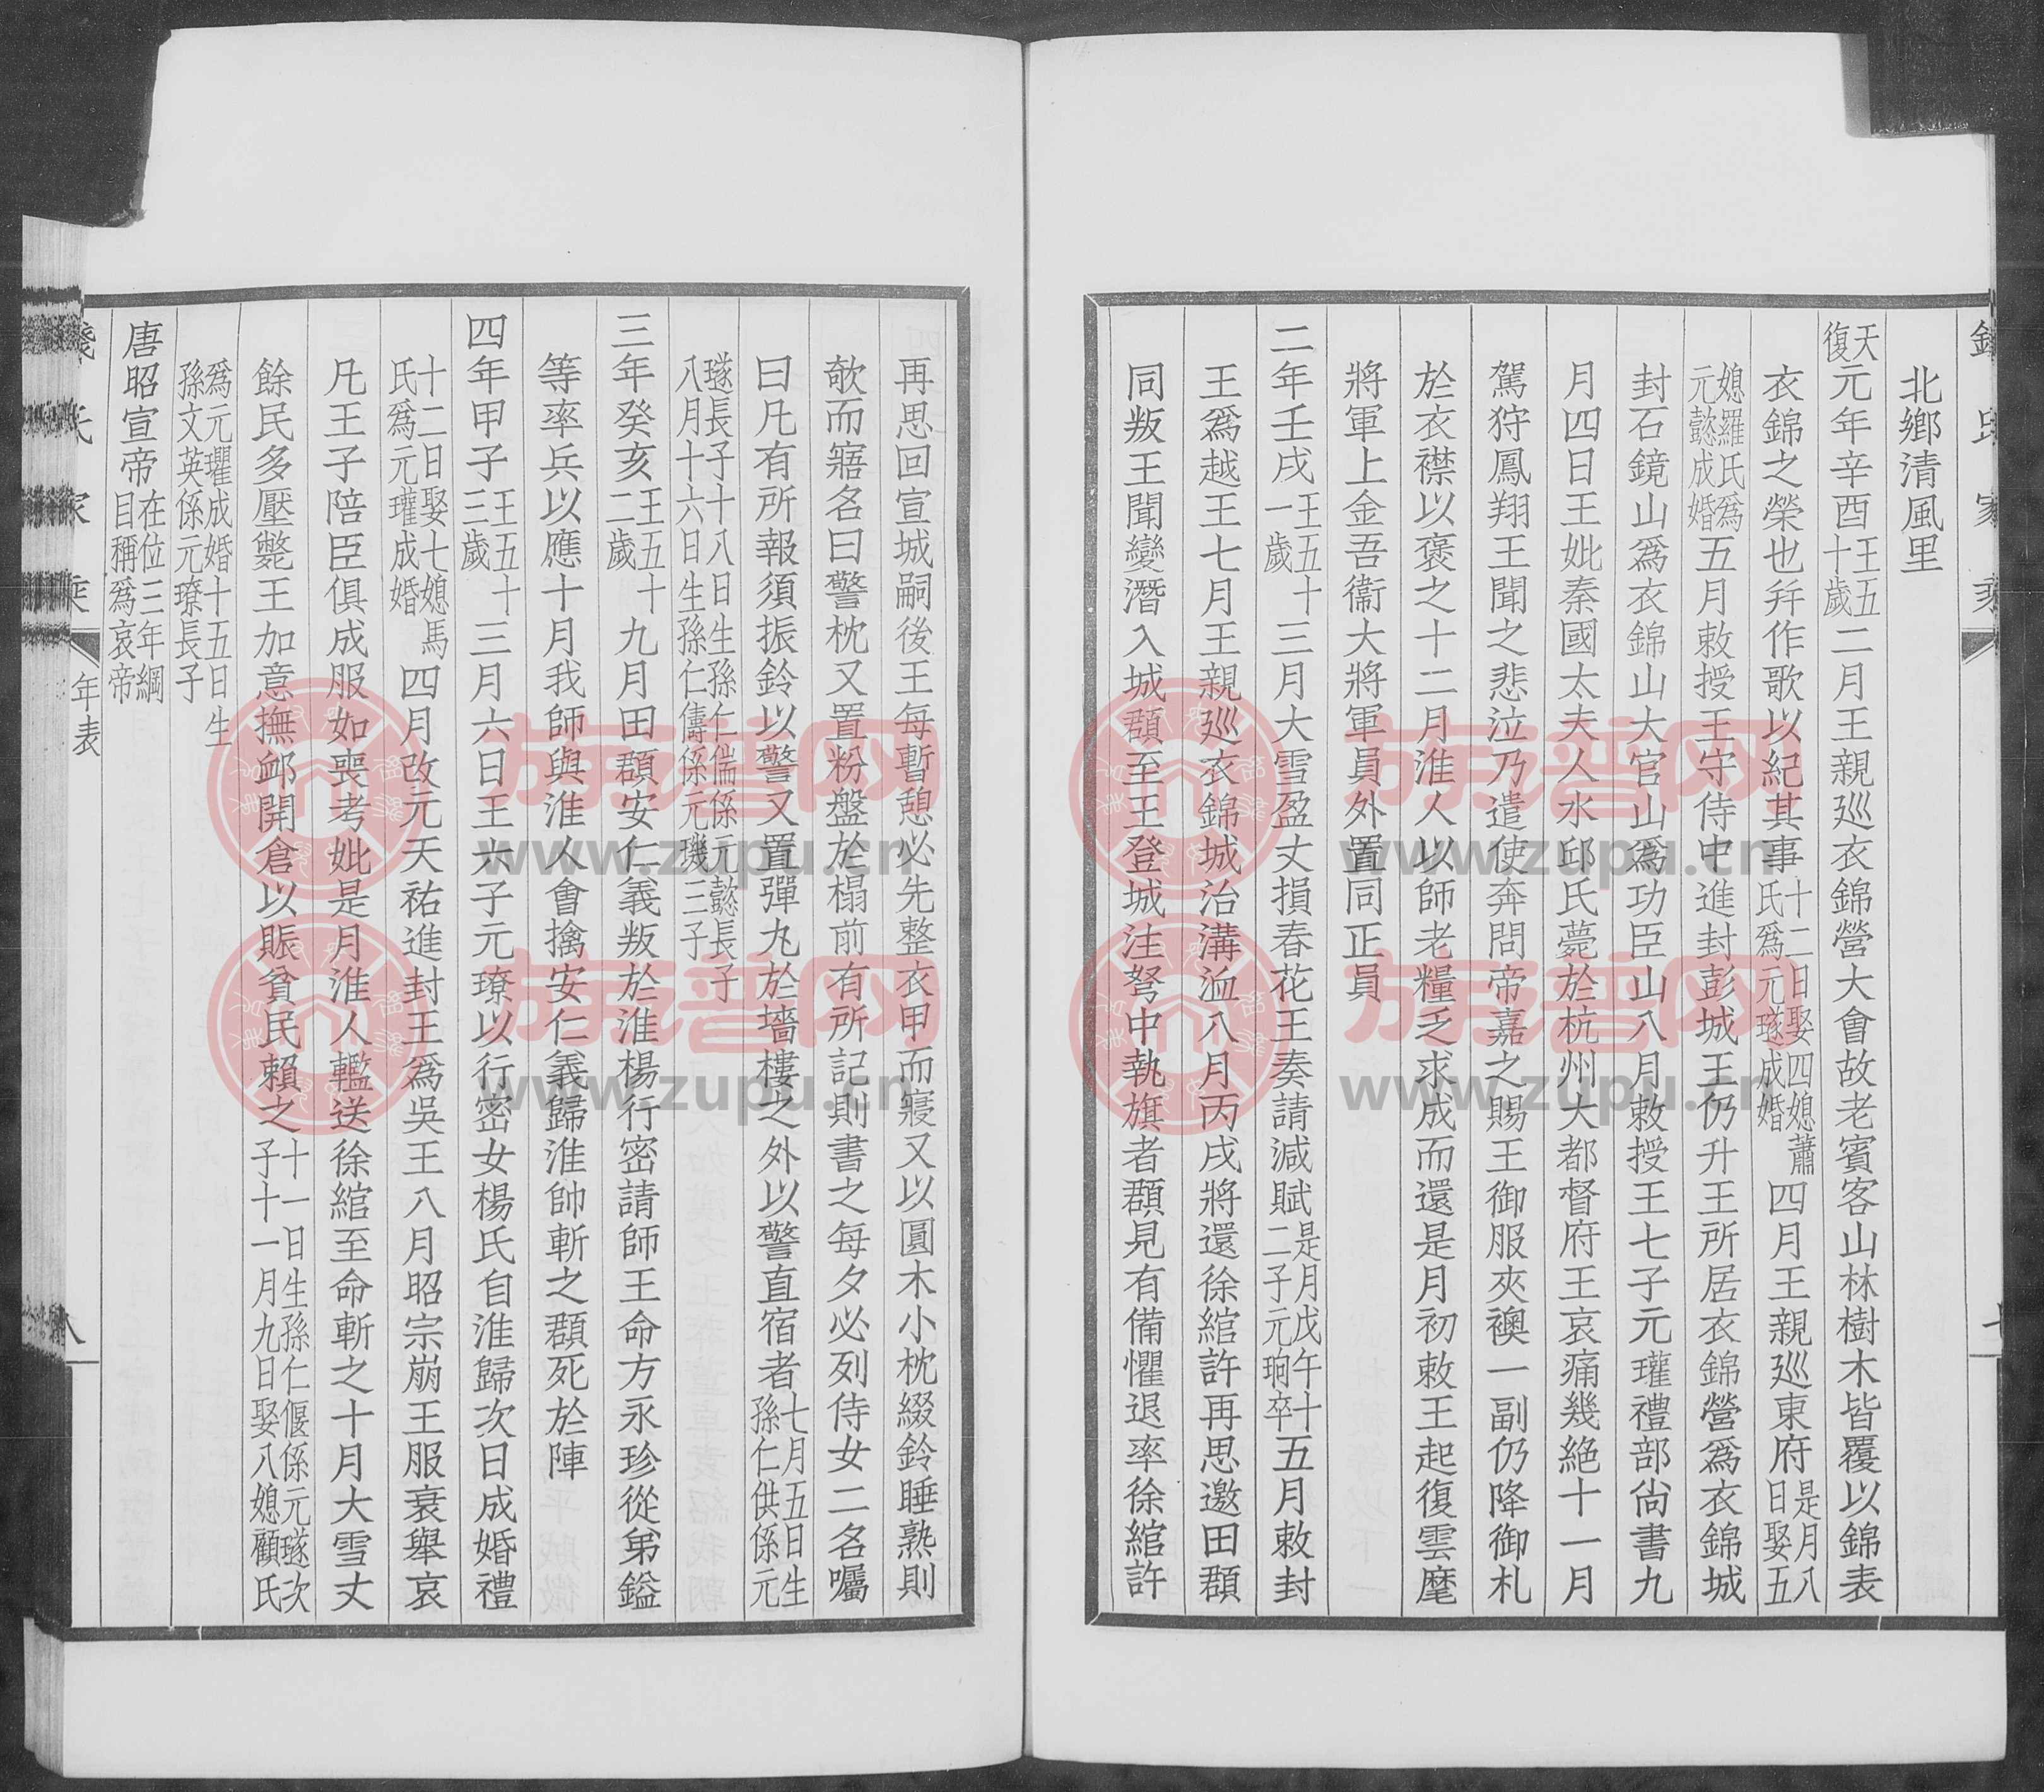 北鄉清風里
天復元年辛酉王五十歲二月王親巡衣錦營大會故老賓客山林樹木皆覆以錦表
衣錦之榮也幷作歌以紀其事十二日娶四媳蕭氏爲元璲成婚四月王親巡東府是月八日娶五
媳羅氏爲元懿成婚五月敕授王守侍中進封彭城王仍升王所居衣錦營爲衣錦城
封石鏡山爲衣錦山大官山爲功臣山八月敕授王七子元瓘禮部尙書九
月四日王妣秦國太夫人水邱氏薨於杭州大都督府王哀痛幾絕十一月
駕狩鳳翔王聞之悲泣乃遣使奔問帝嘉之賜王御服夾襖一副仍降御札
於衣襟以褒之十二月淮人以師老糧乏求成而還是月初敕王起復雲麾
將軍上金吾衞大將軍員外置同正員
二年壬戌王五十一歲三月大雪盈丈損春花王奏請減賦是月戊午十二子元珦卒五月敕封
王爲越王七月王親巡衣錦城治溝洫八月丙戌將還徐綰許再思邀田頵
同叛王聞變潛入城頵至王登城注弩中執旗者頵見有備懼退率徐綰許
錢氏家乘
再思回宣城嗣後王每暫憩必先整衣甲而寢又以圓木小枕綴鈴睡熟則
欹而寤名曰警枕又置粉盤於榻前有所記則書之每夕必列侍女二名囑
曰凡有所報須振鈴以警又置彈丸於墻樓之外以警直宿者七月五日生孫仁供係元
璲長子十八日生孫仁偳係元懿長子八月十六日生孫仁儔係元璣三子
三年癸亥王五十二歲九月田頵安仁義叛於淮楊行密請師王命方永珍從弟鎰
等率兵以應十月我師與淮人會擒安仁義歸淮帥斬之頵死於陣
四年甲子王五十三歲三月六日王六子元璙以行密女楊氏自淮歸次日成婚禮
十二日娶七媳馬氏爲元瓘成婚四月改元天祐進封王爲吳王八月昭宗崩王服衰舉哀
凡王子陪臣俱成服如喪考妣是月淮人轞送徐綰至命斬之十月大雪丈
餘民多壓斃王加意撫卹開倉以賑貧民賴之十一日生孫仁偃係元璲次子十一月九日娶八媳顧氏
爲元瓘成婚十五日生孫文英係元璙長子
唐昭宣帝在位三年綱目稱爲哀帝
氏家乘
年表
八